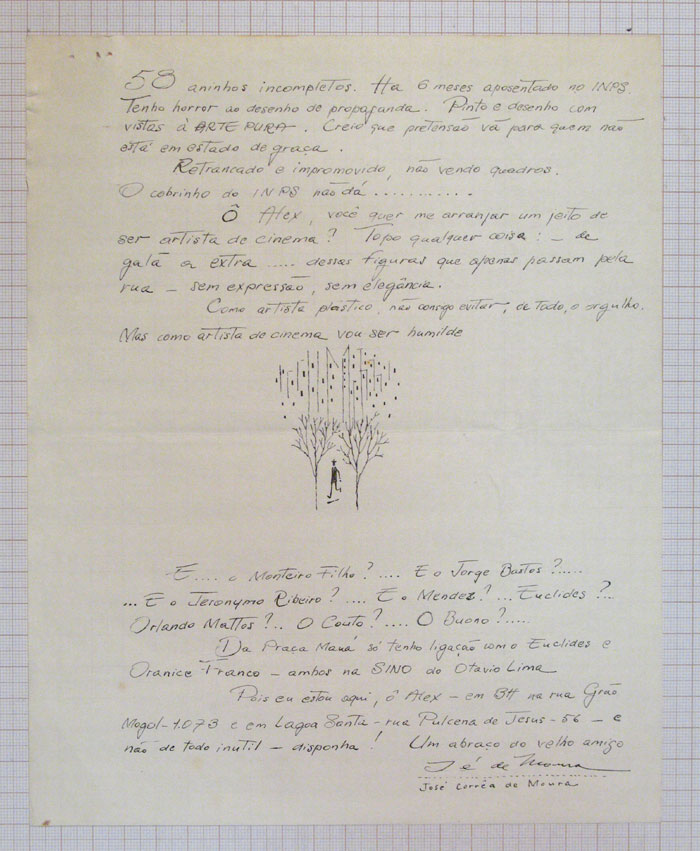 58 aninhos incompletos. Ha 6 meses aposentado no INPS.
Tenho horror ao desenho de propaganda. Pinto e desenho com
vistas à ARTE PURA. Creio que pretensão vã para quem não
está em estado de graça.
Retrancado e impromovido, não vendo quadros.
O cobrinho do INPS não dá ...........
Ô Alex, você quer me arranjar um jeito de
ser artista de cinema? Topo qualquer coisa: - de
galã a extra ..... dessas figuras que apenas passam pela
rua - sem expressão, sem elegância.
Como artista plástico, não consigo evitar, de todo, o orgulho.
Mas como artista de cinema vou ser humilde
E .... o Monteiro Filho? .... E o Jorge Bastos? .....
... E o Jeronymo Ribeiro? .... E o Mendez? ... Euclides? ..
Orlando Mattos? .. O Couto? .... O Buono? .....
Da Praca Mauá só tenho ligação com o Euclides e
Oranice Franco - ambos na SINO do Otavio Lima
Pois eu estou aqui, ô Alex - em BH na rua Grão
Mogol - 1.073 e em Lagoa Santa - rua Pulcena de Jesus - 56 - e
não de todo inutil - disponha! Um abraço do velho amigo
J é de Moura
José Corrêa de Moura